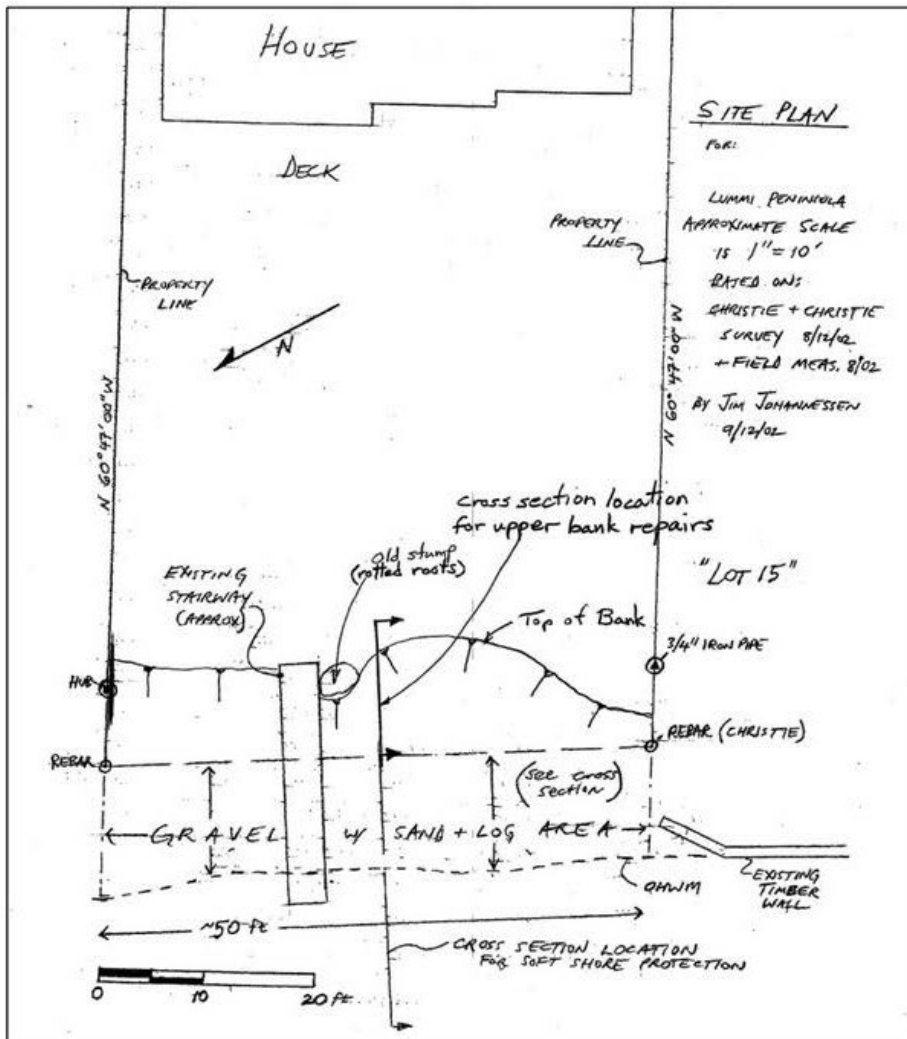 HOUSE
DECK
SITE PLAN
FOR:
LUMMI PENINSULA
APPROXIMATE SCALE
IS 1" = 10'
BASED ON:
CHRISTIE + CHRISTIE
SURVEY 8/12/02
+ FIELD MEAS. 8/02
BY JIM JOHANNESSEN
9/12/02
PROPERTY
LINE
PROPERTY
LINE
N
N 60° 47' 00" W
N 60° 47' 00" W
cross section location
for upper bank repairs
old stump
(rotted roots)
EXISTING
STAIRWAY
(APPROX)
"LOT 15"
Top of Bank
3/4" IRON PIPE
HUB
REBAR
REBAR (CHRISTIE)
(see cross
section)
GRAVEL W/ SAND + LOG AREA
OHWM
EXISTING
TIMBER
WALL
~50 ft
CROSS SECTION LOCATION
FOR SOFT SHORE PROTECTION
0 10 20 ft